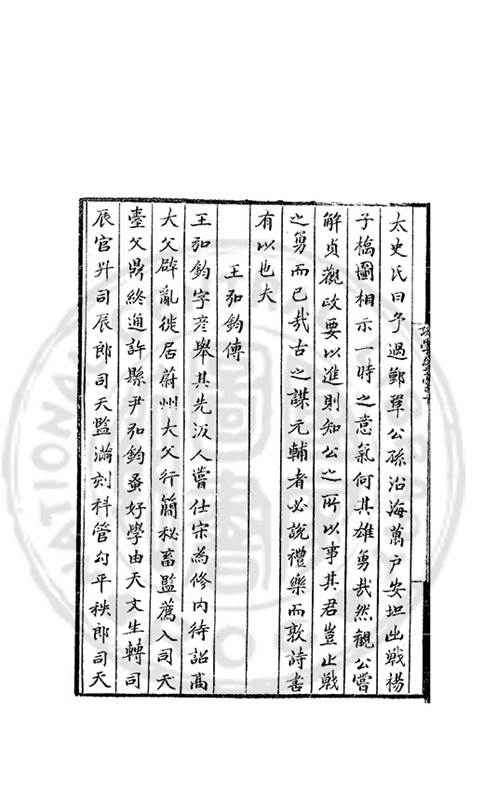 太史氏曰予過鄞單公孫沿海萬戶安坦出戰楊
子橋圖相示一時之意氣何其雄勇哉然觀公嘗
解貞觀政要以進則知公之所以事其君豈止戰
之勇而已哉古之謀元輔者必說禮樂而敦詩書
有以也夫
王弘鈞傳
王弘鈞字彥舉其先汲人嘗仕宋為修內待詔髙
大父辟亂徙居蔚州大父行簡秘書監薦入司天
臺父鼎終通許縣尹弘鈞蚤好學由天文生轉司
辰官升司辰郎司天監漏刻科管勾平秩郎司天